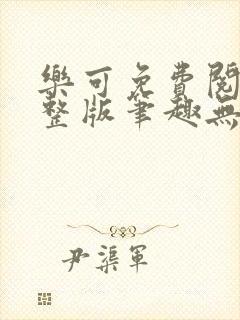 樂可免費閱
整版筆趣無
尹渠軍